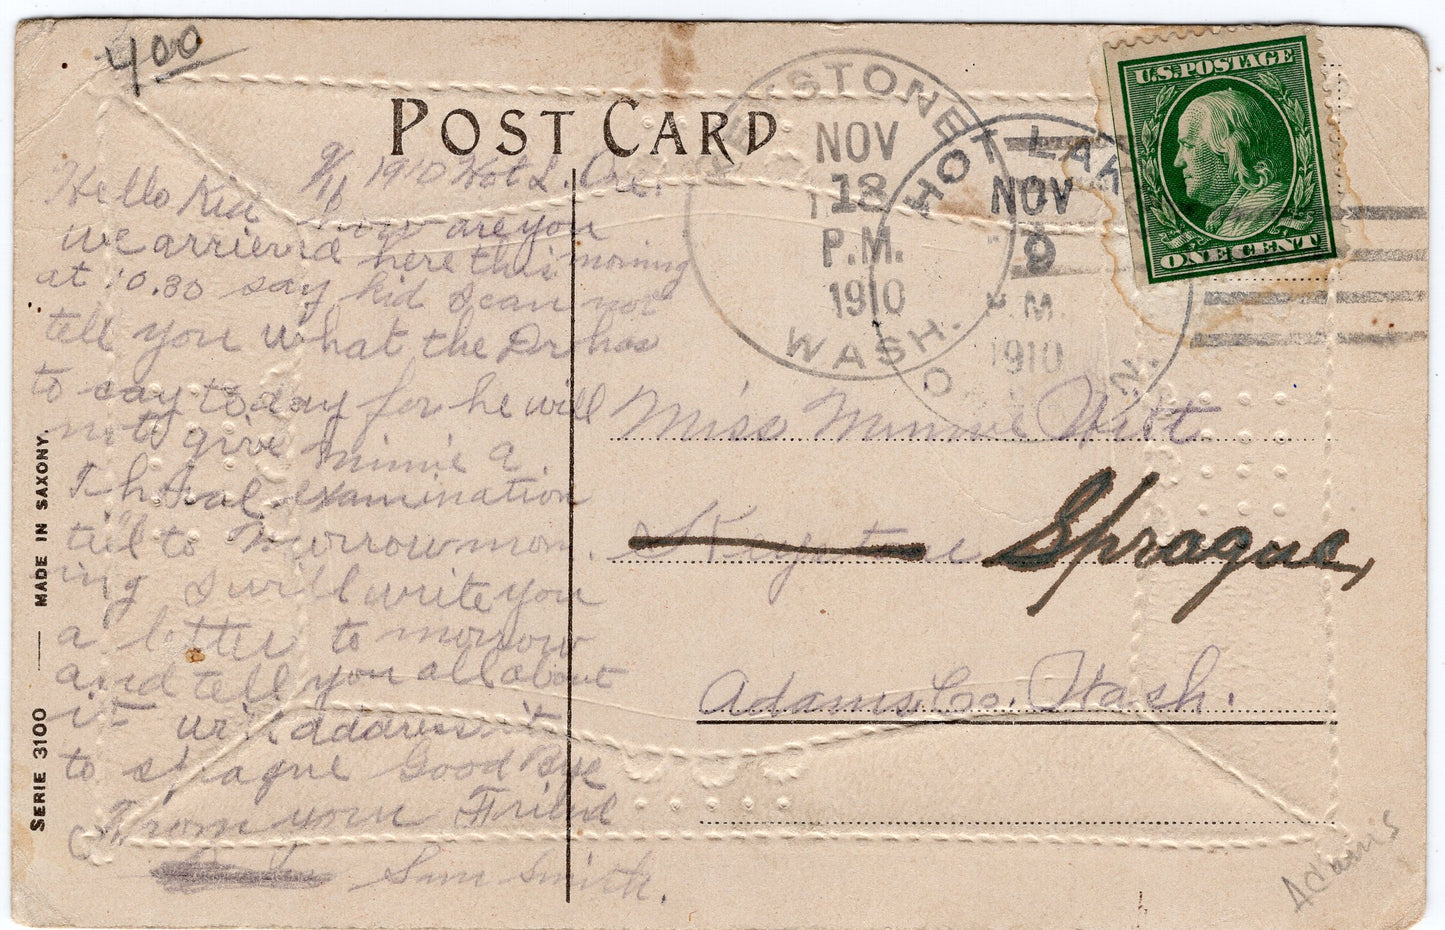 400
POST CARD
KEYSTONE
NOV
18
P.M.
1910
WASH.
HOT LAKE
NOV
9
P.M.
1910
U.S. POSTAGE
ONE CENT
9/11 1910 Hot L. Ore.
Hello Kid how are you
we arrieved here this morning
at 10.30 say kid I can not
tell you what the Dr has
to say today for he will
not give minnie a
Thoral examination
till to Murrow morn.
ing I will write you
a letter to morrow
and tell you all about
it will address it
to sprague Good Bye
From your Friend
Sam Smith.
Miss Minnie Witt
Keystone
Sprague,
Adams Co. Wash.
SERIE 3100 — MADE IN SAXONY.
Adams